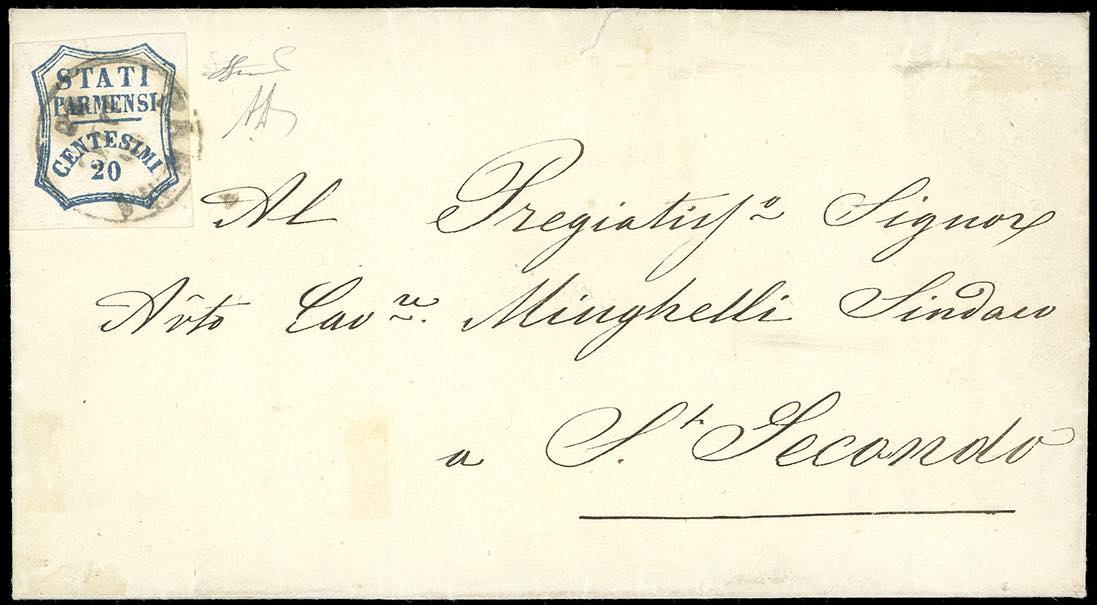 STATI
PARMENSI
CENTESIMI
20
Al Pregiatiss.o Signor
Avto Cav.re Minghelli Sindaco
a S.t Secondo